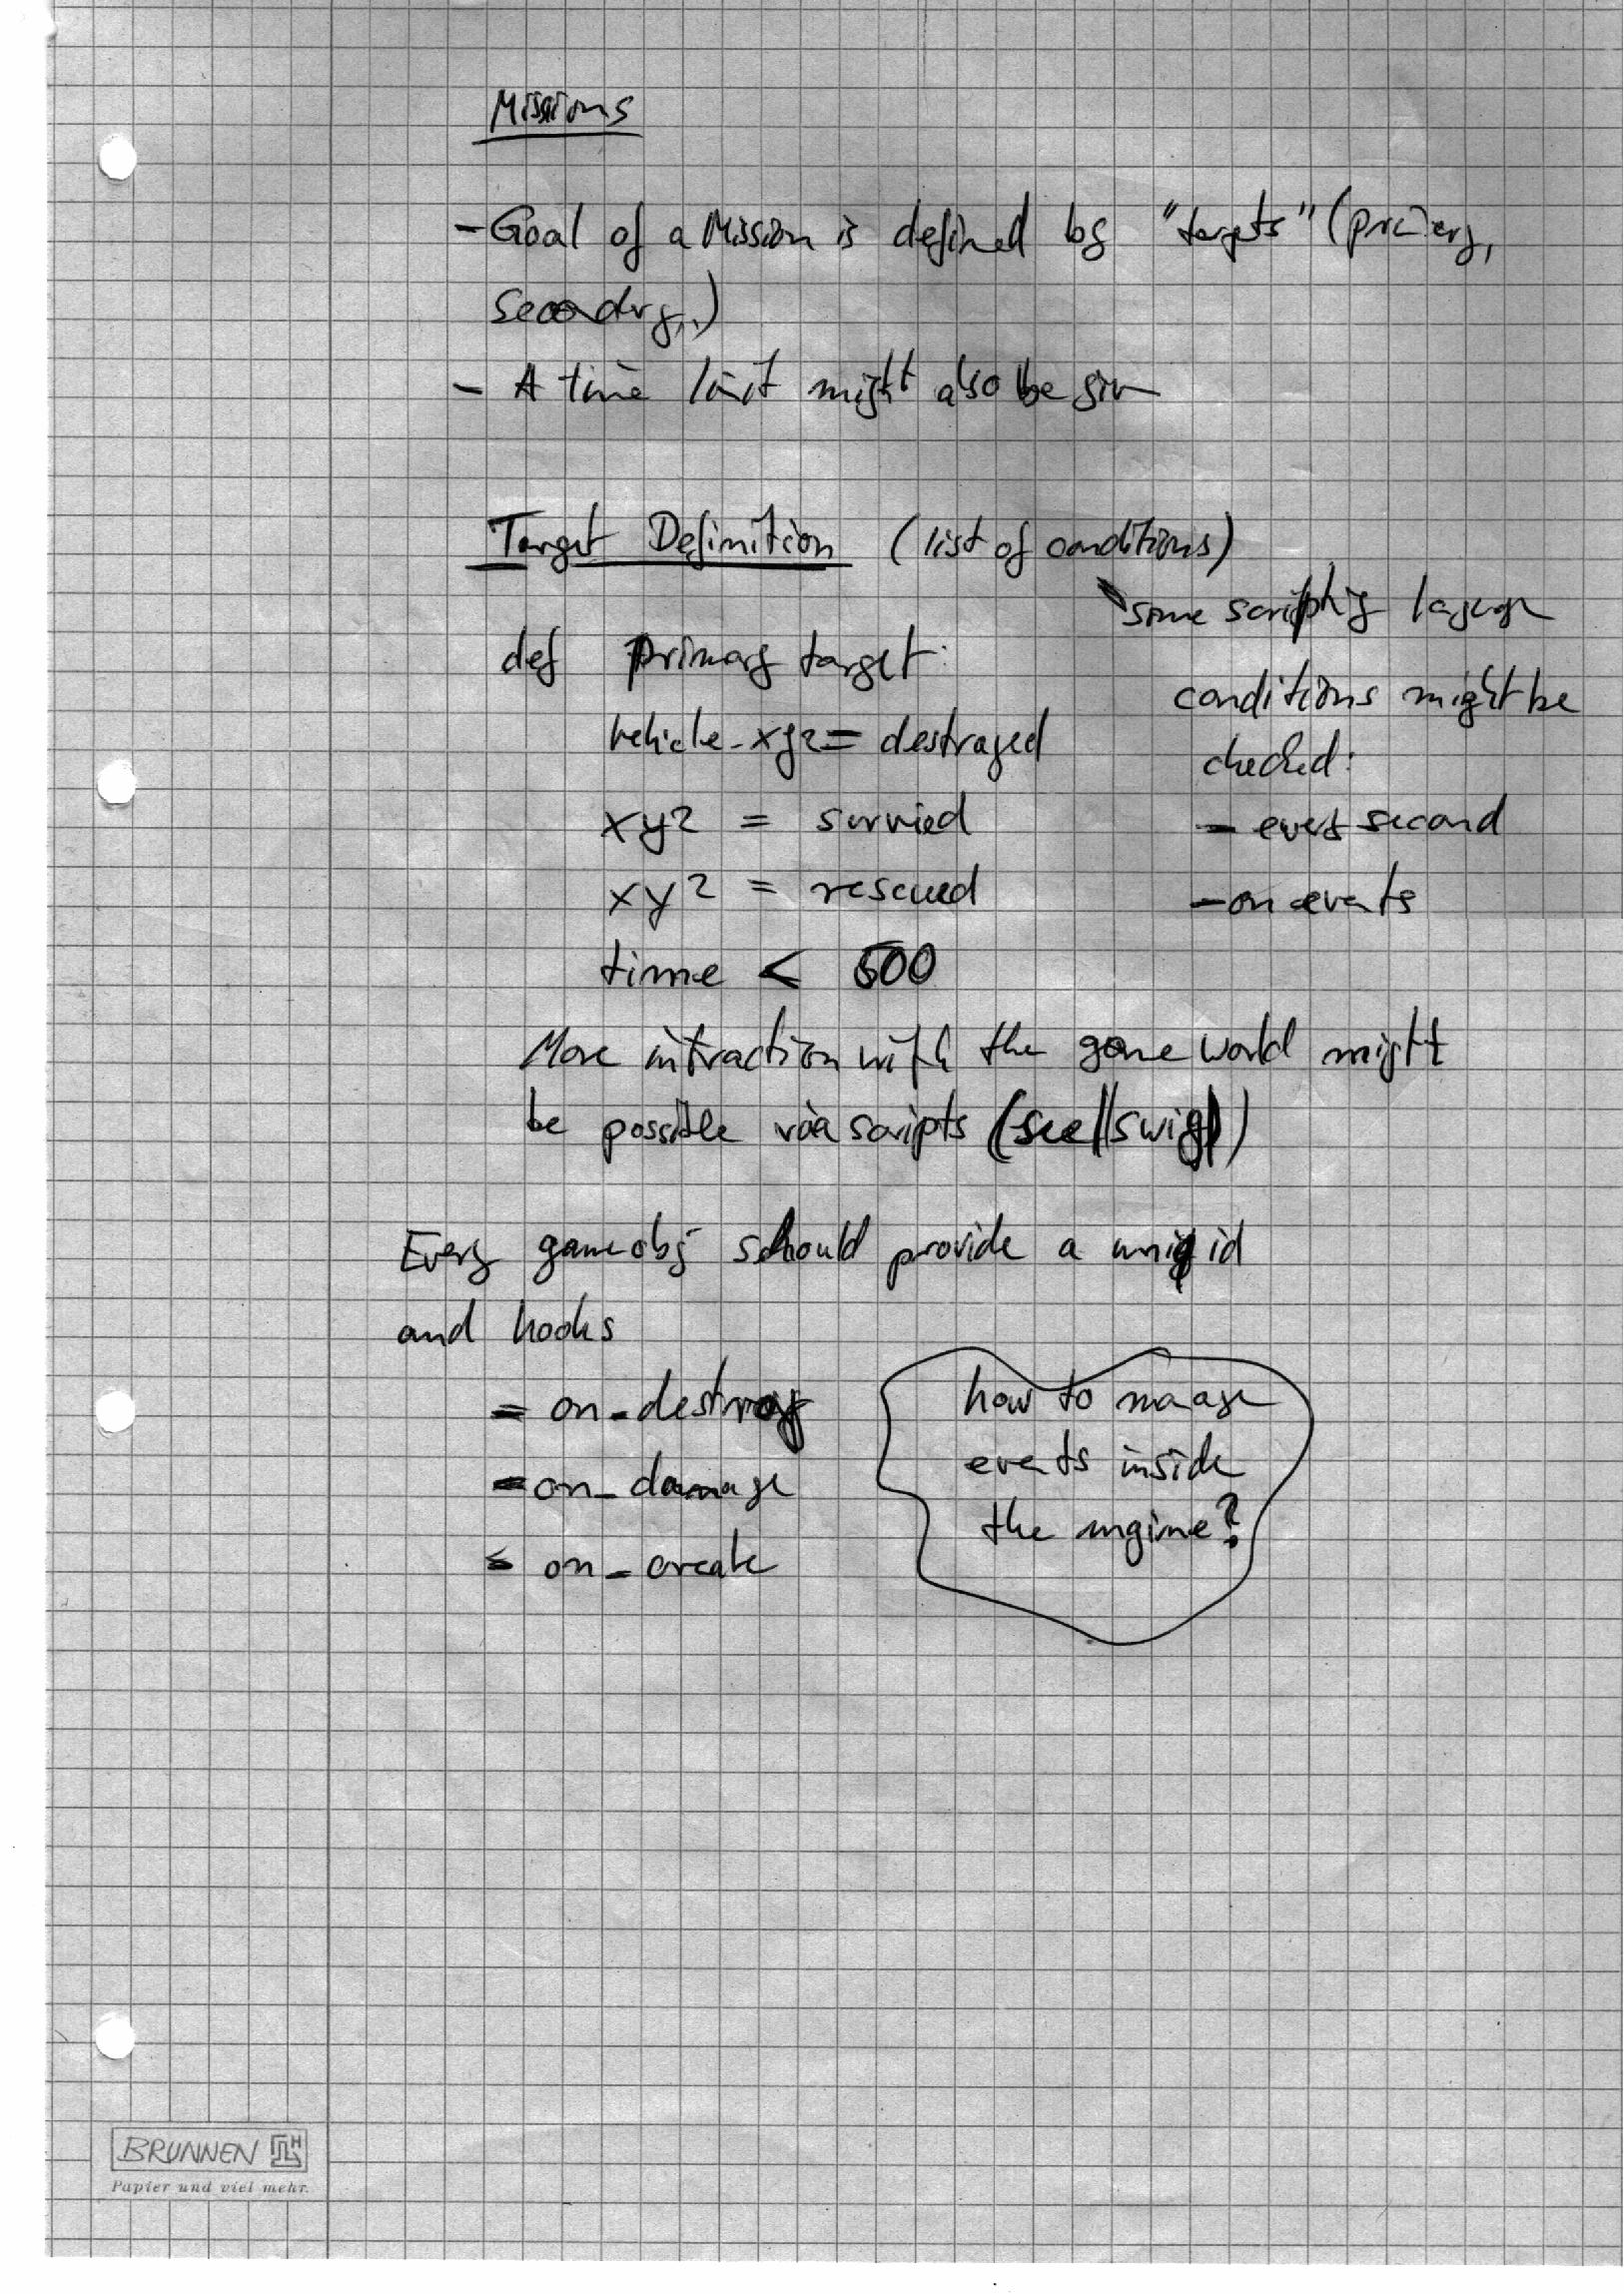 Missions
- Goal of a Mission is defined by "targets" (primary,
secondary,..)
- A time limit might also be given
Target Definition (list of conditions)
some scripting language
def Primary target:
vehicle-xyz = destroyed
xyz = survied
xyz = rescued
time < 500
conditions might be
checked:
- every second
- on events
More intraction with the game world might
be possible via scripts (see swig)
Every gameobj should provide a uniq id
and hooks
- on_destroy
- on_damage
- on_create
how to manage
events inside
the engine?
BRUNNEN
Papier und viel mehr.